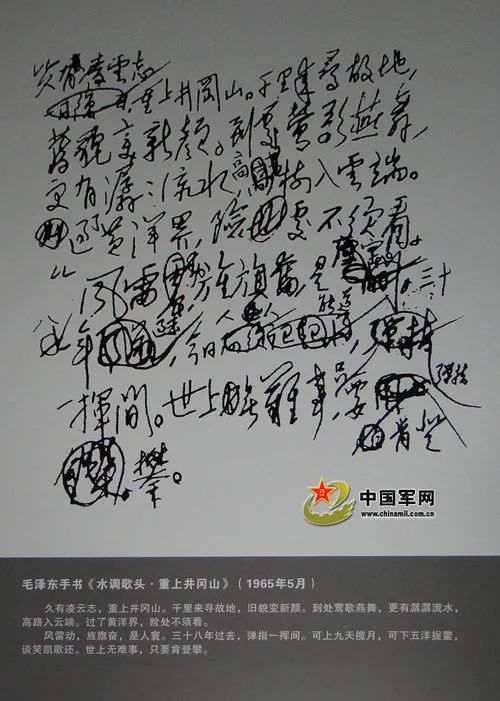 久有凌雲志
重上井冈山。千里来尋故地,
舊貌变新颜。到處莺歌燕舞,
更有潺:流水,高路入雲端。
过黄洋界,險處不须看。
风雷旌旗奮,是三十
八年今日
弹指
一揮间。世上無難事,只要肯登
攀。
中国军网
www.chinamil.com.cn
毛泽东手书《水调歌头·重上井冈山》（1965年5月）
久有凌云志，重上井冈山。千里来寻故地，旧貌变新颜。到处莺歌燕舞，更有潺潺流水，
高路入云端。过了黄洋界，险处不须看。
风雷动，旌旗奋，是人寰。三十八年过去，弹指一挥间。可上九天揽月，可下五洋捉鳖，
谈笑凯歌还。世上无难事，只要肯登攀。